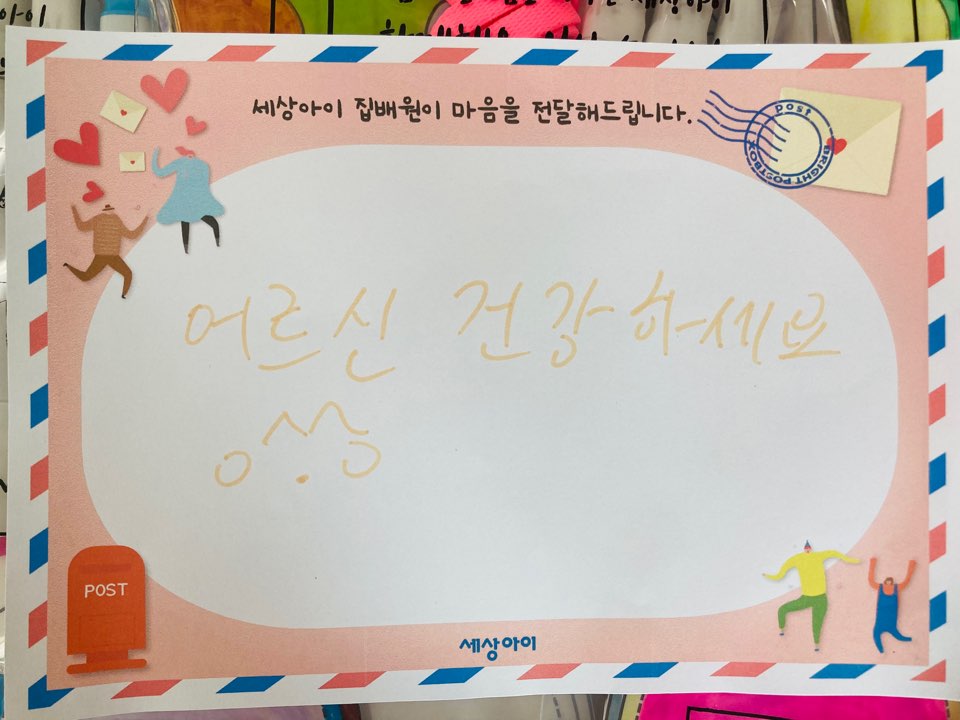 세상아이 집배원이 마음을 전달해드립니다.
POST
BRIGHT POSTBOX
어르신 건강하세요
POST
세상아이